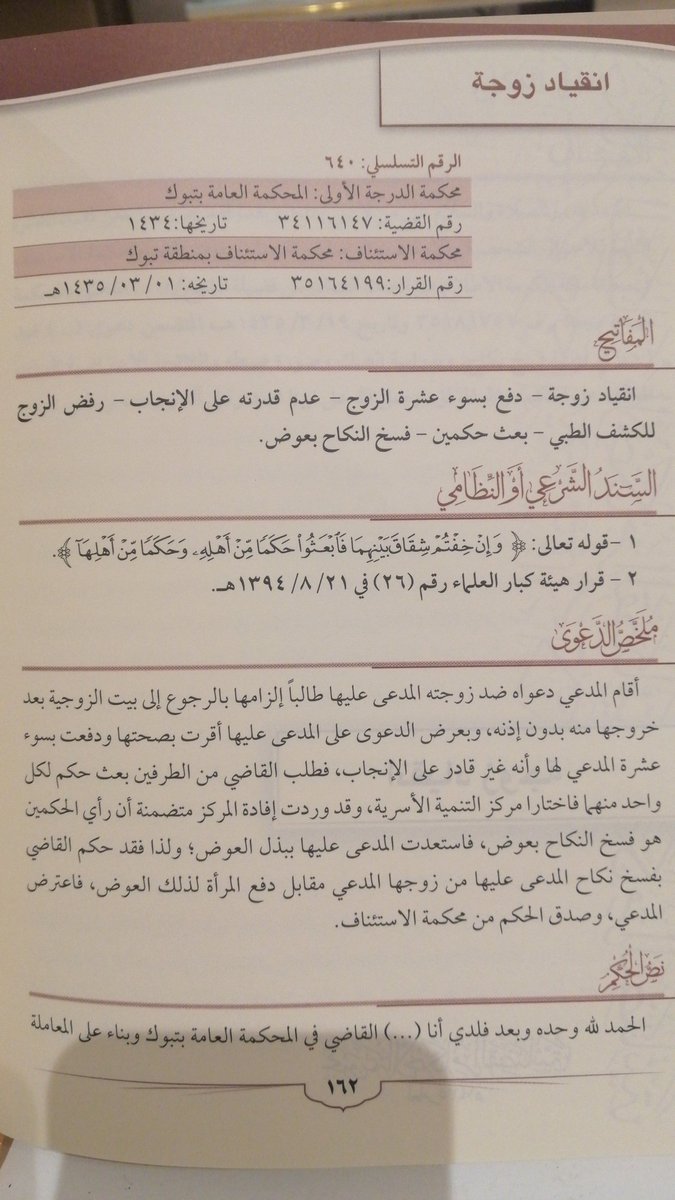 انقياد زوجة
الرقم التسلسلي: ٦٤٠
محكمة الدرجة الأولى: المحكمة العامة بتبوك
رقم القضية: ٣٤١١٦١٤٧ تاريخها: ١٤٣٤
محكمة الاستئناف: محكمة الاستئناف بمنطقة تبوك
رقم القرار: ٣٥١٦٤١٩٩ تاريخه: ٠١/ ٠٣/ ١٤٣٥هـ
المَفَاتِيحُ
انقياد زوجة – دفع بسوء عشرة الزوج – عدم قدرته على الإنجاب – رفض الزوج
للكشف الطبي – بعث حكمين – فسخ النكاح بعوض.
السَّنَدُ الشَّرْعِي أَوِ النِّظَامِي
١ – قوله تعالى: ﴿ وَإِنْ خِفْتُمْ شِقَاقَ بَيْنِهِمَا فَٱبْعَثُوا۟ حَكَمًا مِّنْ أَهْلِهِۦ وَحَكَمًا مِّنْ أَهْلِهَآ ﴾.
٢ – قرار هيئة كبار العلماء رقم (٢٦) في ٢١/ ٨/ ١٣٩٤هـ.
مُلَخَّصُ الدَّعْوَى
أقام المدعي دعواه ضد زوجته المدعى عليها طالباً إلزامها بالرجوع إلى بيت الزوجية بعد
خروجها منه بدون إذنه، وبعرض الدعوى على المدعى عليها أقرت بصحتها ودفعت بسوء
عشرة المدعي لها وأنه غير قادر على الإنجاب، فطلب القاضي من الطرفين بعث حكم لكل
واحد منهما فاختارا مركز التنمية الأسرية، وقد وردت إفادة المركز متضمنة أن رأي الحكمين
هو فسخ النكاح بعوض، فاستعدت المدعى عليها ببذل العوض؛ ولذا فقد حكم القاضي
بفسخ نكاح المدعى عليها من زوجها المدعي مقابل دفع المرأة لذلك العوض، فاعترض
المدعي، وصدق الحكم من محكمة الاستئناف.
نَصُّ الحُكْمِ
الحمد لله وحده وبعد فلدي أنا (...) القاضي في المحكمة العامة بتبوك وبناء على المعاملة
١٦٢